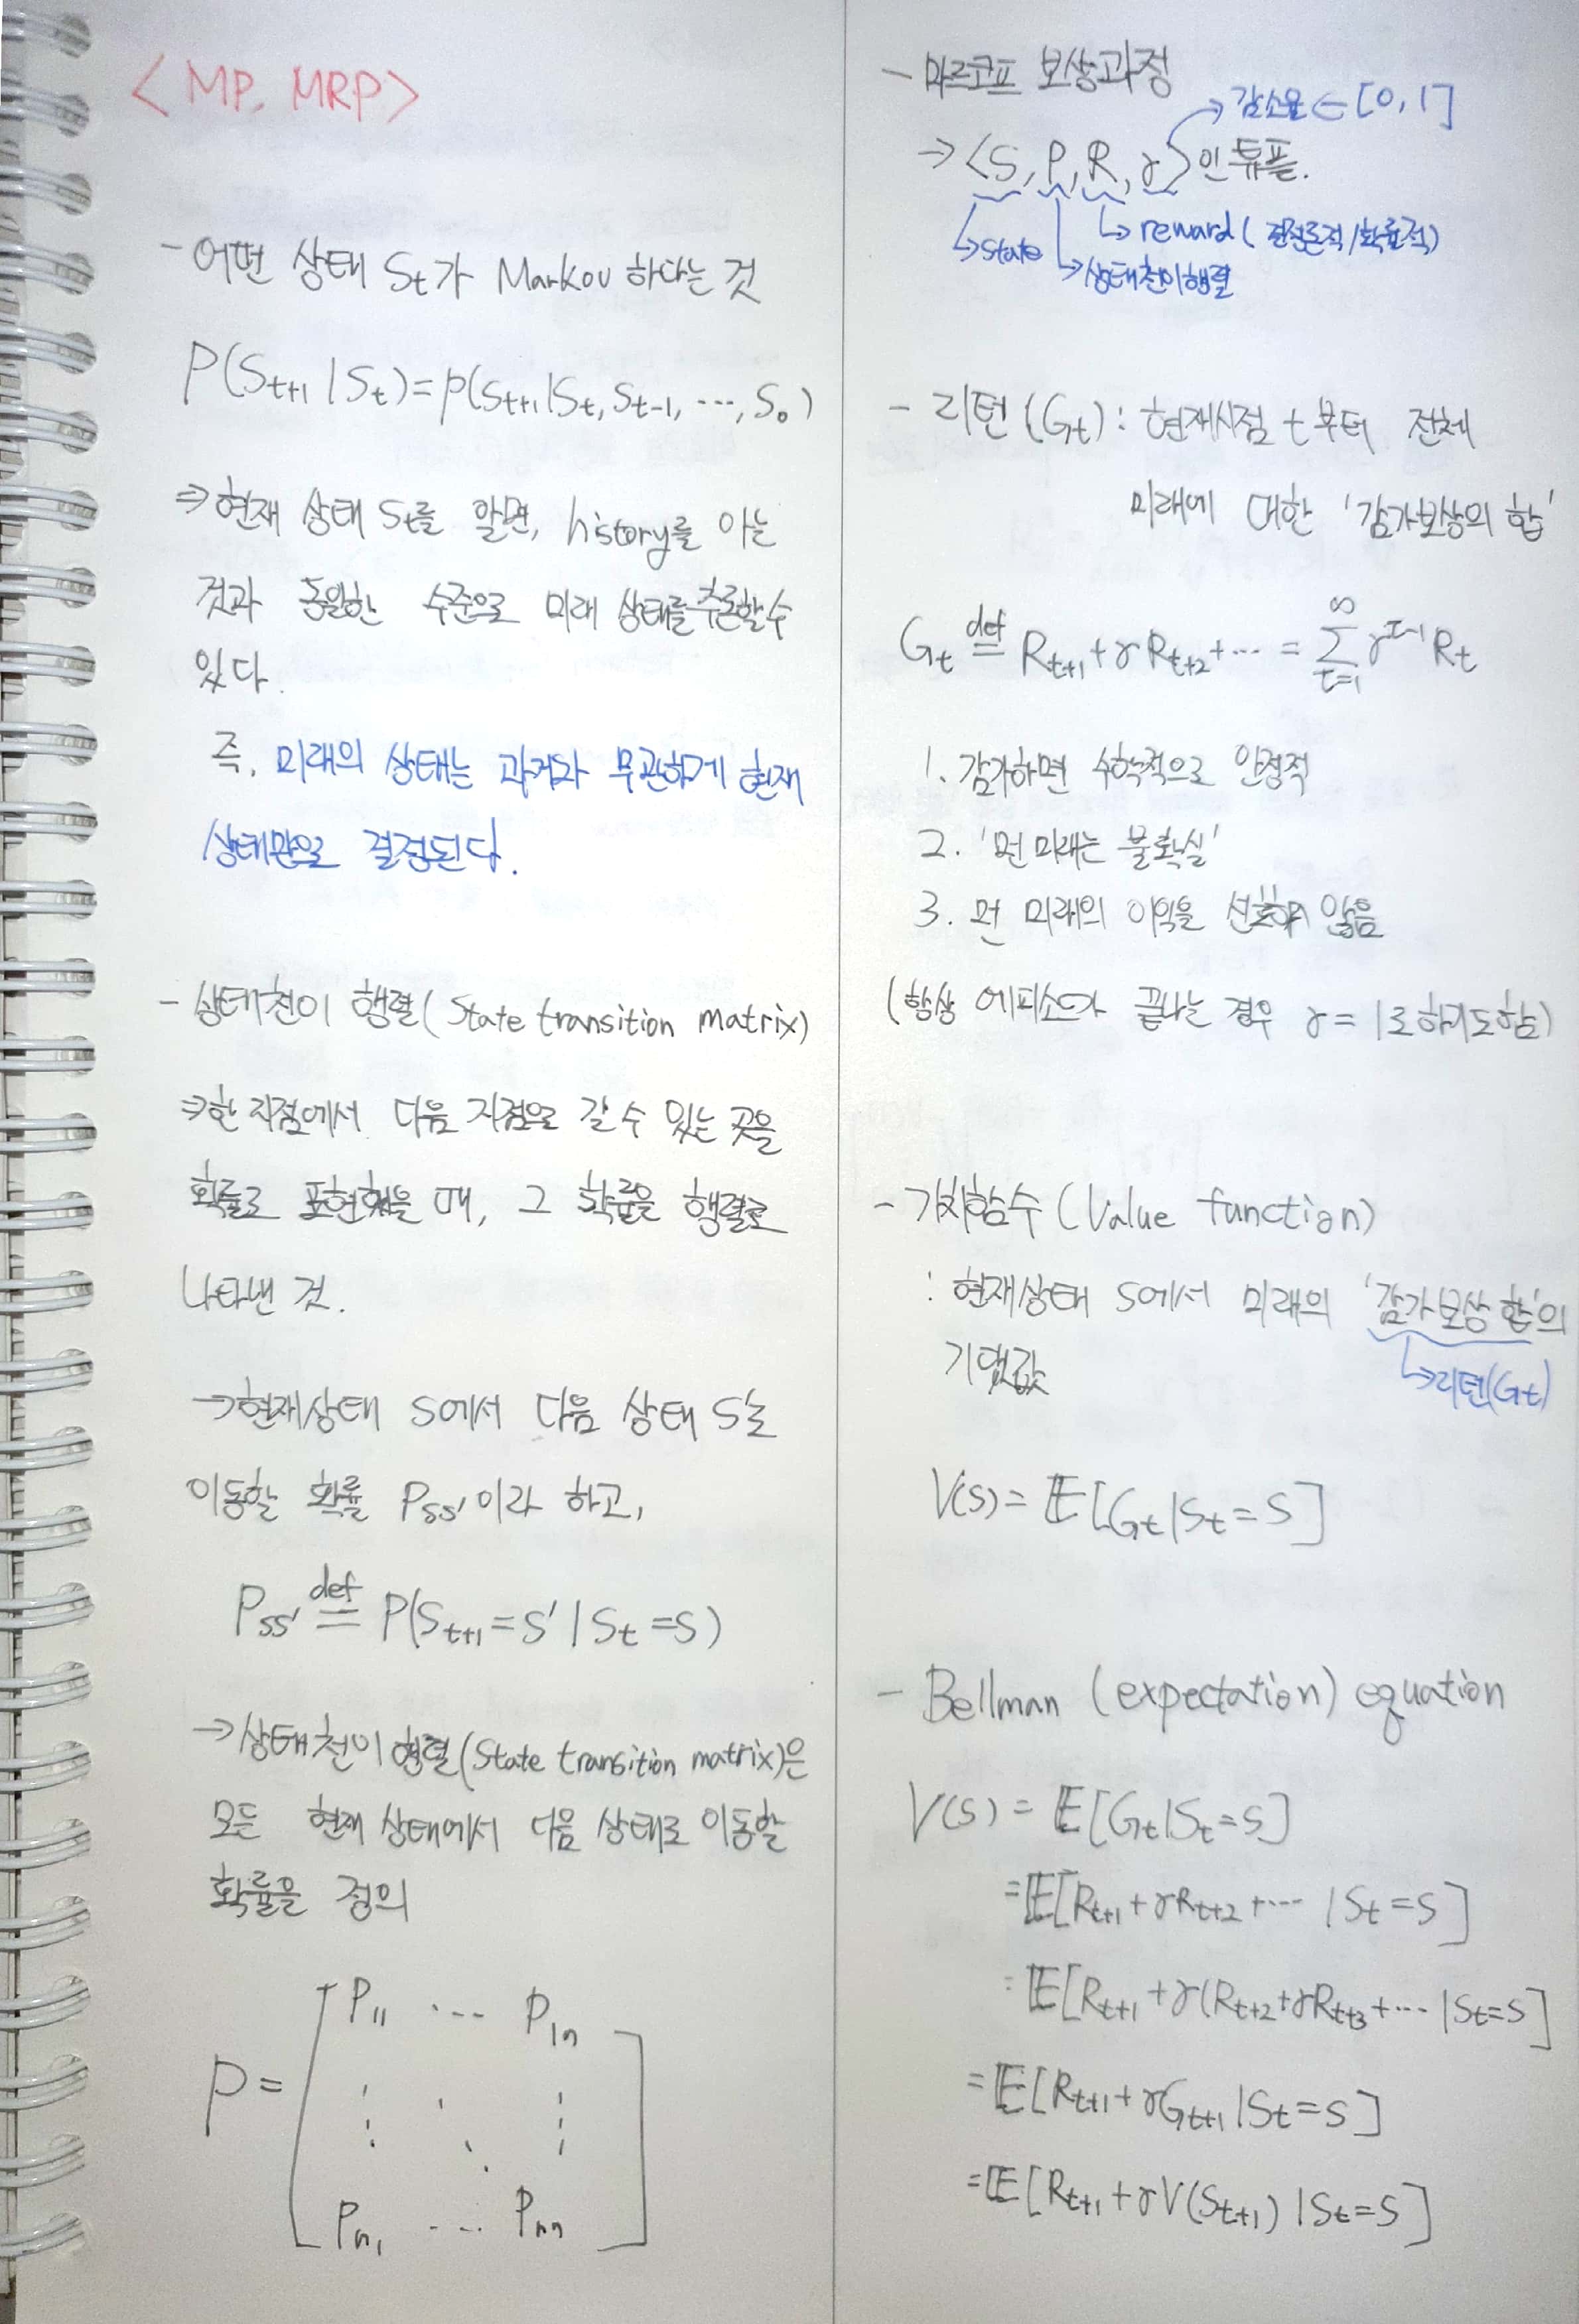 <MP, MRP>
- 어떤 상태 St가 Markov 하다는 것
P(St+1 | St) = P(St+1 | St, St-1, ⋯, S0)
⇒ 현재 상태 St를 알면, history를 아는
것과 동일한 수준으로 미래 상태를 추론할 수
있다.
즉, 미래의 상태는 과거와 무관하게 현재
상태만으로 결정된다.
- 상태천이 행렬 (State transition matrix)
⇒ 한 지점에서 다음 지점으로 갈 수 있는 곳을
확률로 표현했을 때, 그 확률을 행렬로
나타낸 것.
→ 현재상태 S에서 다음 상태 S'로
이동할 확률 Pss' 이라 하고,
Pss' def= P(St+1 = S' | St = S)
→ 상태천이 행렬(State transition matrix)은
모든 현재 상태에서 다음 상태로 이동할
확률을 정의
P = [ P11 ⋯ P1n
⋮ ⋱ ⋮
Pn1 ⋯ Pnn ]
- 마르코프 보상과정
→ 감소율 ∈ [0, 1]
→ <S, P, R, γ> 인 튜플.
↳ reward ( 결정론적 / 확률적)
↳ state
↳ 상태천이행렬
- 리턴 (Gt) : 현재시점 t부터 전체
미래에 대한 '감가보상의 합'
Gt def= Rt+1 + γRt+2 + ⋯ = ∞∑t=1 γt-1 Rt
1. 감가하면 수학적으로 안정적
2. '먼 미래는 불확실'
3. 먼 미래의 이익을 선호하지 않음
(항상 에피소드가 끝나는 경우 γ = 1로 하기도 함)
- 가치함수 (Value function)
: 현재상태 S에서 미래의 '감가보상 합'의
↳ 리턴(Gt)
기댓값
V(S) = E[Gt | St = S]
- Bellman (expectation) equation
V(S) = E[Gt | St = S]
= E[Rt+1 + γRt+2 + ⋯ | St = S]
= E[Rt+1 + γ(Rt+2 + γRt+3 + ⋯ | St = S]
= E[Rt+1 + γGt+1 | St = S]
= E[Rt+1 + γV(St+1) | St = S]